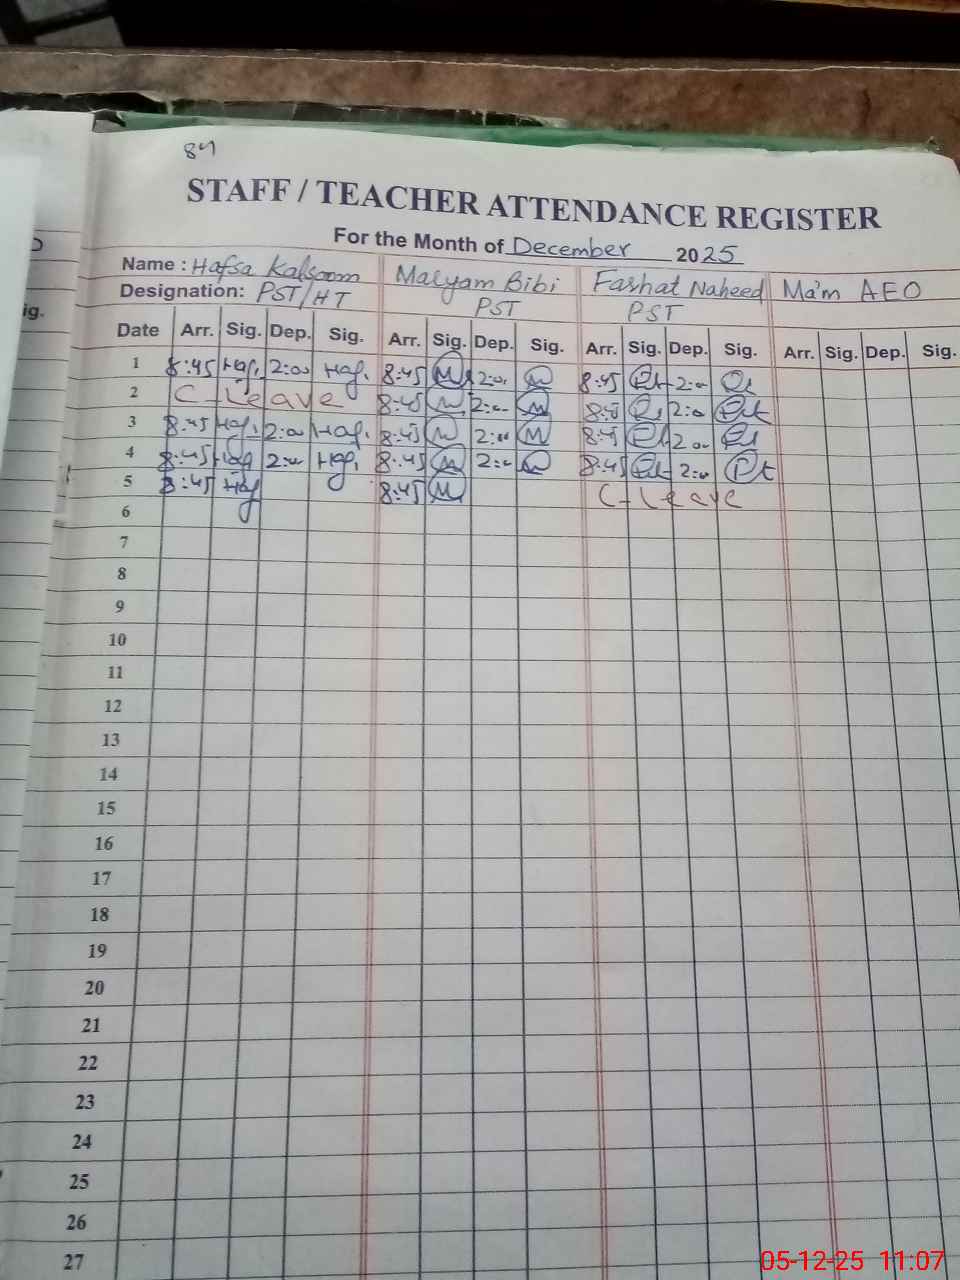 84
STAFF / TEACHER ATTENDANCE REGISTER
For the Month of December 2025
Name : Hafsa Kalsoom Maryam Bibi Farhat Naheed Ma'm AEO
Designation: PST/HT PST PST
ig.
Date Arr. Sig. Dep. Sig. Arr. Sig. Dep. Sig. Arr. Sig. Dep. Sig. Arr. Sig. Dep. Sig.
1 8:45 Haf. 2:00 Haf. 8:45 M 2:00 M 8:45 2:00
2 C-Leave 8:45 M 2:00 M 8:45 2:00
3 8:45 Haf. 2:00 Haf. 8:45 M 2:00 M 8:45 2:00
4 8:45 Haf 2:00 Haf. 8:45 M 2:00 M 8:45 2:00
5 8:45 Haf 8:45 M C-Leave
6
7
8
9
10
11
12
13
14
15
16
17
18
19
20
21
22
23
24
25
26
27
05-12-25 11:07